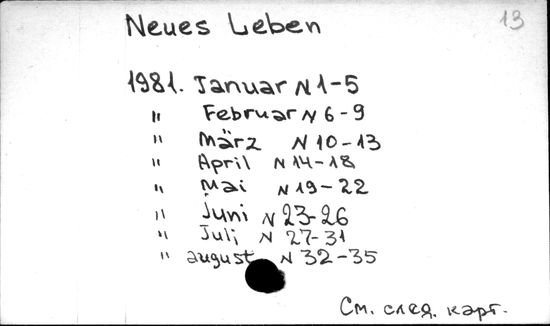 13
Neues Leben
1981. Januar N 1-5
" Februar N 6-9
" März N 10-13
" April N 14-18
" Mai N 19-22
" Juni N 23-26
" Juli N 27-31
" august N 32-35
См. след. карт.